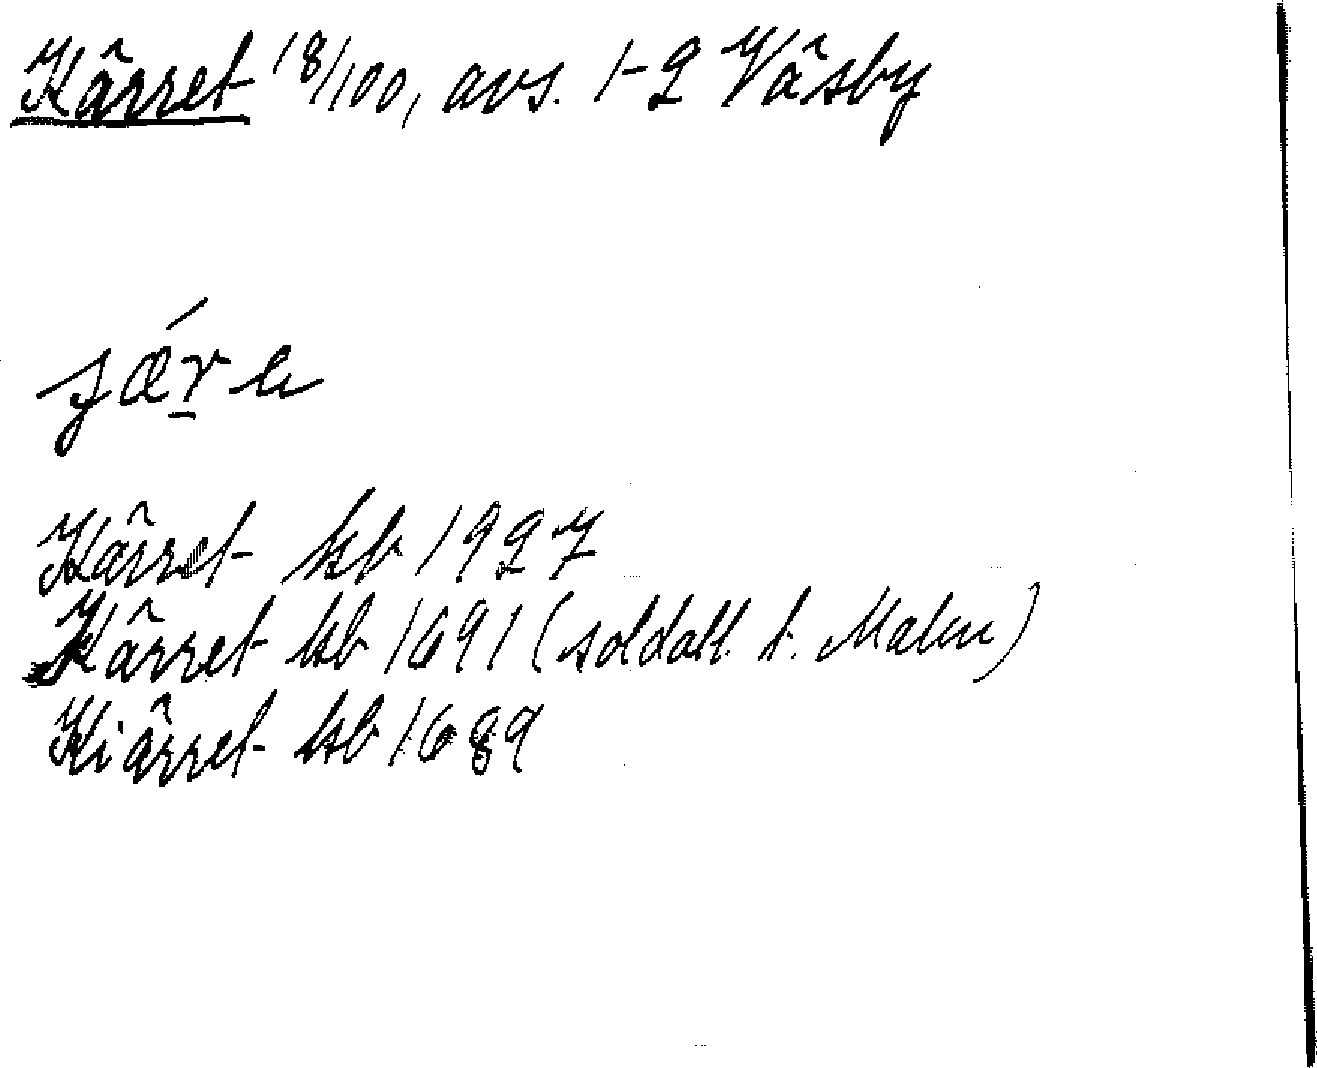 Kärret 18/100, avs. 1-2 Väsby
Kärret kb 1927
Kärret kb 1691 (soldatt. t. Malen)
Kiärret kb 1689